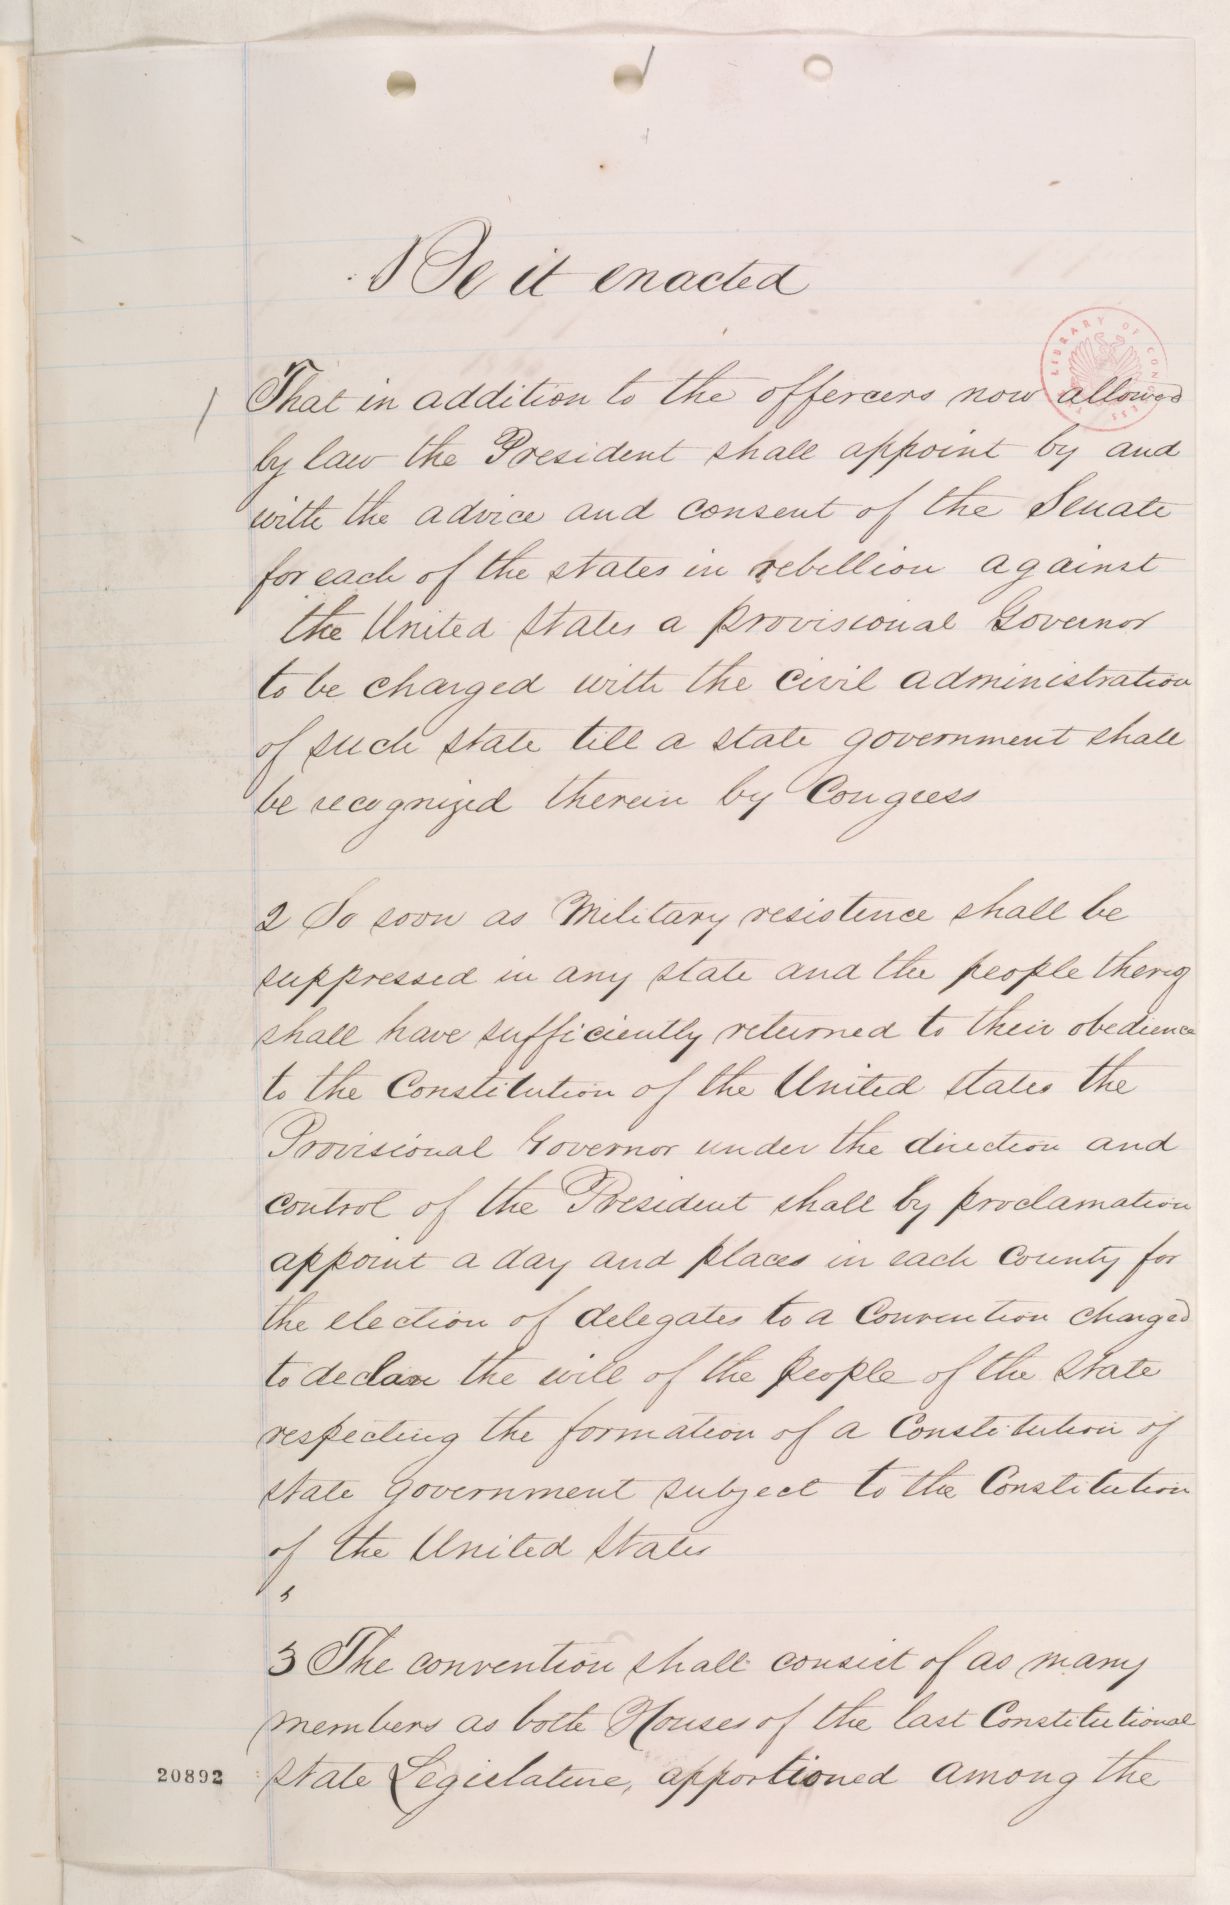 Be it enacted
1 That in addition to the offercers now allowed
by law the President shall appoint by and
with the advice and consent of the Senate
for each of the states in rebellion against
the United States a provisional Governor
to be charged with the civil administration
of such state till a state government shall
be recognized therein by Congress
2 So soon as Military resistence shall be
suppressed in any state and the people therof
shall have sufficiently returned to their obedience
to the Constitution of the United States the
Provisional Governor under the direction and
control of the President shall by proclamation
appoint a day and places in each County for
the election of delegates to a Convention charged
to declare the will of the people of the State
respecting the formation of a Constitution of
state Government subject to the Constitution
of the United States
3 The convention shall consist of as many
members as both Houses of the last Constitutional
state Legislature, apportioned among the
20892
THE LIBRARY OF CONGRESS